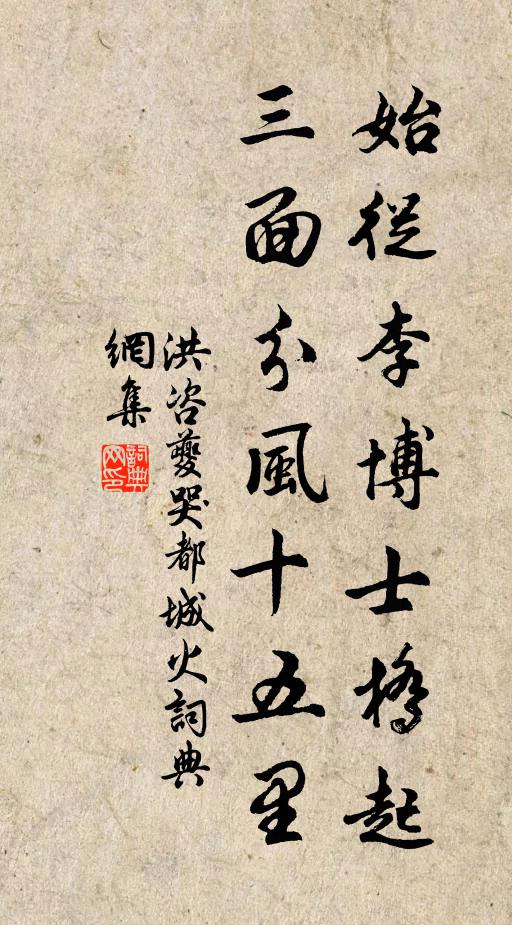 始從李博士橋起
三面分風十五里
洪咨夔哭都城火詞典
網集
詞典
网印